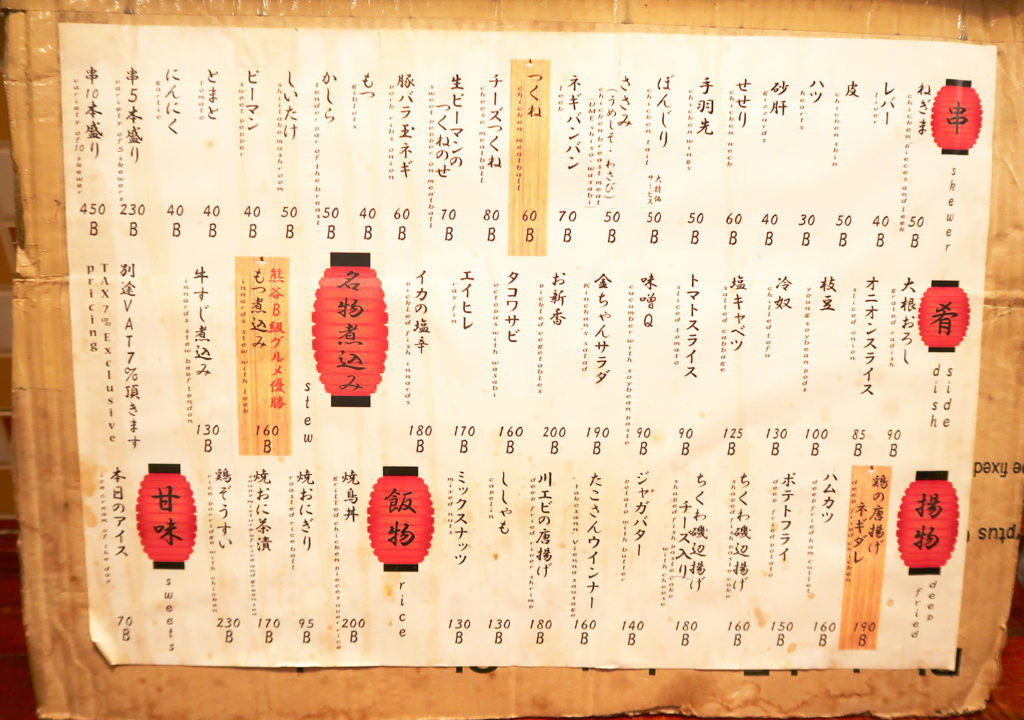 串
skewer
ねぎま
chicken pieces and leek
50B
レバー
liver
40B
皮
chicken skin
50B
ハツ
hearts
30B
砂肝
gizzards
40B
せせり
chicken neck
60B
手羽先
chicken wings
50B
ぼんじり
chicken tail
大将佑サービス
50B
ささみ
(うめしそ、わさび)
chicken breast meat
(UME shiso・wasabi)
50B
ネギバンバン
leek
70B
つくね
chicken meatball
60B
チーズつくね
cheese meatball
80B
生ピーマンの
つくねのせ
sweet pepper on meatball
70B
豚バラ玉ネギ
pork ribs onion
60B
もつ
giblets
40B
かしら
tender par of the breast
50B
しいたけ
shiitake mushroom
50B
ピーマン
sweet pepper
40B
とまと
tomato
40B
にんにく
garlic
40B
串5本盛り
variety of 5 skewers
230B
串10本盛り
variety of 10 skewer
450B
肴
side dish
大根おろし
grated radish
90B
オニオンスライス
sliced onion
85B
枝豆
young soybean pods
100B
冷奴
chilled tofu
130B
塩キャベツ
salted cabbage
125B
トマトスライス
sliced tomato
90B
味噌Q
cucumber with soybean paste
90B
金ちゃんサラダ
Kinchan's salad
190B
お新香
pickled vegetables
200B
タコワサビ
octopus with wasabi
160B
エイヒレ
ray fin
170B
イカの塩辛
pickled fish innards
180B
名物煮込み
stew
熊谷B級グルメ優勝
もつ煮込み
innards stew with leek
160B
牛すじ煮込み
innards stew beef tendon
130B
別途VAT7%頂きます
TAX 7% Exclusive
pricing
揚物
deep fried
鶏の唐揚げ
ネギダレ
deep fried chicken
190B
ハムカツ
deep fried ham cutlet
160B
ポテトフライ
deep fried potato
150B
ちくわ磯辺揚げ
160B
ちくわ磯辺揚げ
チーズ入り
180B
ジャガバター
potato with butter
140B
たこさんウインナー
takosan' vienna sausage
160B
川エビの唐揚げ
deep fried river shrimp
180B
ししゃも
capelin
130B
ミックスナッツ
mixed nuts
130B
飯物
rice
焼鳥丼
grilled chicken pieces over rice
200B
焼おにぎり
roasted rice ball
95B
焼おに茶漬
170B
鶏ぞうすい
rice porridge with chicken
230B
甘味
sweets
本日のアイス
icecream of the day
70B